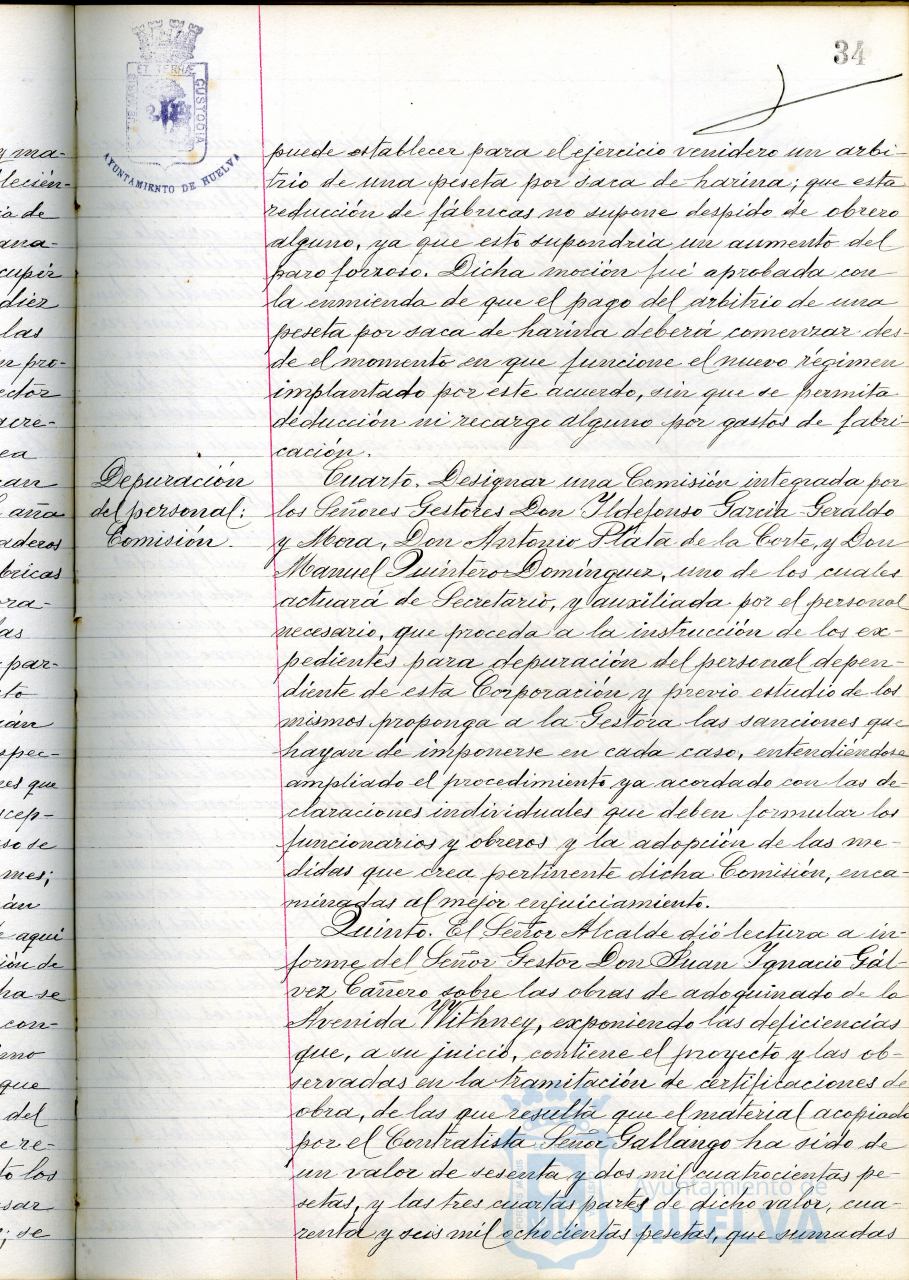 34
PORTUS MARIS
ET TERRAE
CUSTODIA
AYUNTAMIENTO DE HUELVA
y ma-
lecién-
ia de
ana-
cupir
diez
las
n pro-
ector
acre-
ea
can
aña
aderos
bricas
ora-
las
par-
to
án
spec-
nes que
scep-
so se
mes;
án
e aquí
ión de
ha se
con-
imo
que
del
e re-
to los
sar
; se
puede establecer para el ejercicio venidero un arbi-
trio de una peseta por saca de harina; que esta
reducción de fábricas no supone despido de obrero
alguno, ya que esto supondría un aumento del
paro forzoso. Dicha moción fué aprobada con
la enmienda de que el pago del arbitrio de una
peseta por saca de harina deberá comenzar des-
de el momento en que funcione el nuevo régimen
implantado por este acuerdo, sin que se permita
deducción ni recargo alguno por gastos de fabri-
cación.
Depuración
del personal:
Comisión.
Cuarto. Designar una Comisión integrada por
los Señores Gestores Don Ildefonso Garcia-Geraldo
y Mora, Don Antonio Plata de la Corte, y Don
Manuel Quintero Domínguez, uno de los cuales
actuará de Secretario, y auxiliada por el personal
necesario, que proceda a la instrucción de los ex-
pedientes para depuración del personal depen-
diente de esta Corporación y previo estudio de los
mismos proponga a la Gestora las sanciones que
hayan de imponerse en cada caso, entendiéndose
ampliado el procedimiento ya acordado con las de-
claraciones individuales que deben formular los
funcionarios y obreros y la adopción de las me-
didas que crea pertinente dicha Comisión, enca-
minadas al mejor enjuiciamiento.
Quinto. El Señor Alcalde dió lectura a in-
forme del Señor Gestor Don Juan Ignacio Gál-
vez Cañero sobre las obras de adoquinado de la
Avenida Withney, exponiendo las deficiencias
que, a su juicio, contiene el proyecto y las ob-
servadas en la tramitación de certificaciones de
obra, de las que resulta que el material acopiado
por el Contratista Señor Gallango ha sido de
un valor de sesenta y dos mil cuatrocientas pe-
setas, y las tres cuartas partes de dicho valor, cua-
renta y seis mil ochocientas pesetas, que sumadas
Ayuntamiento de
HUELVA